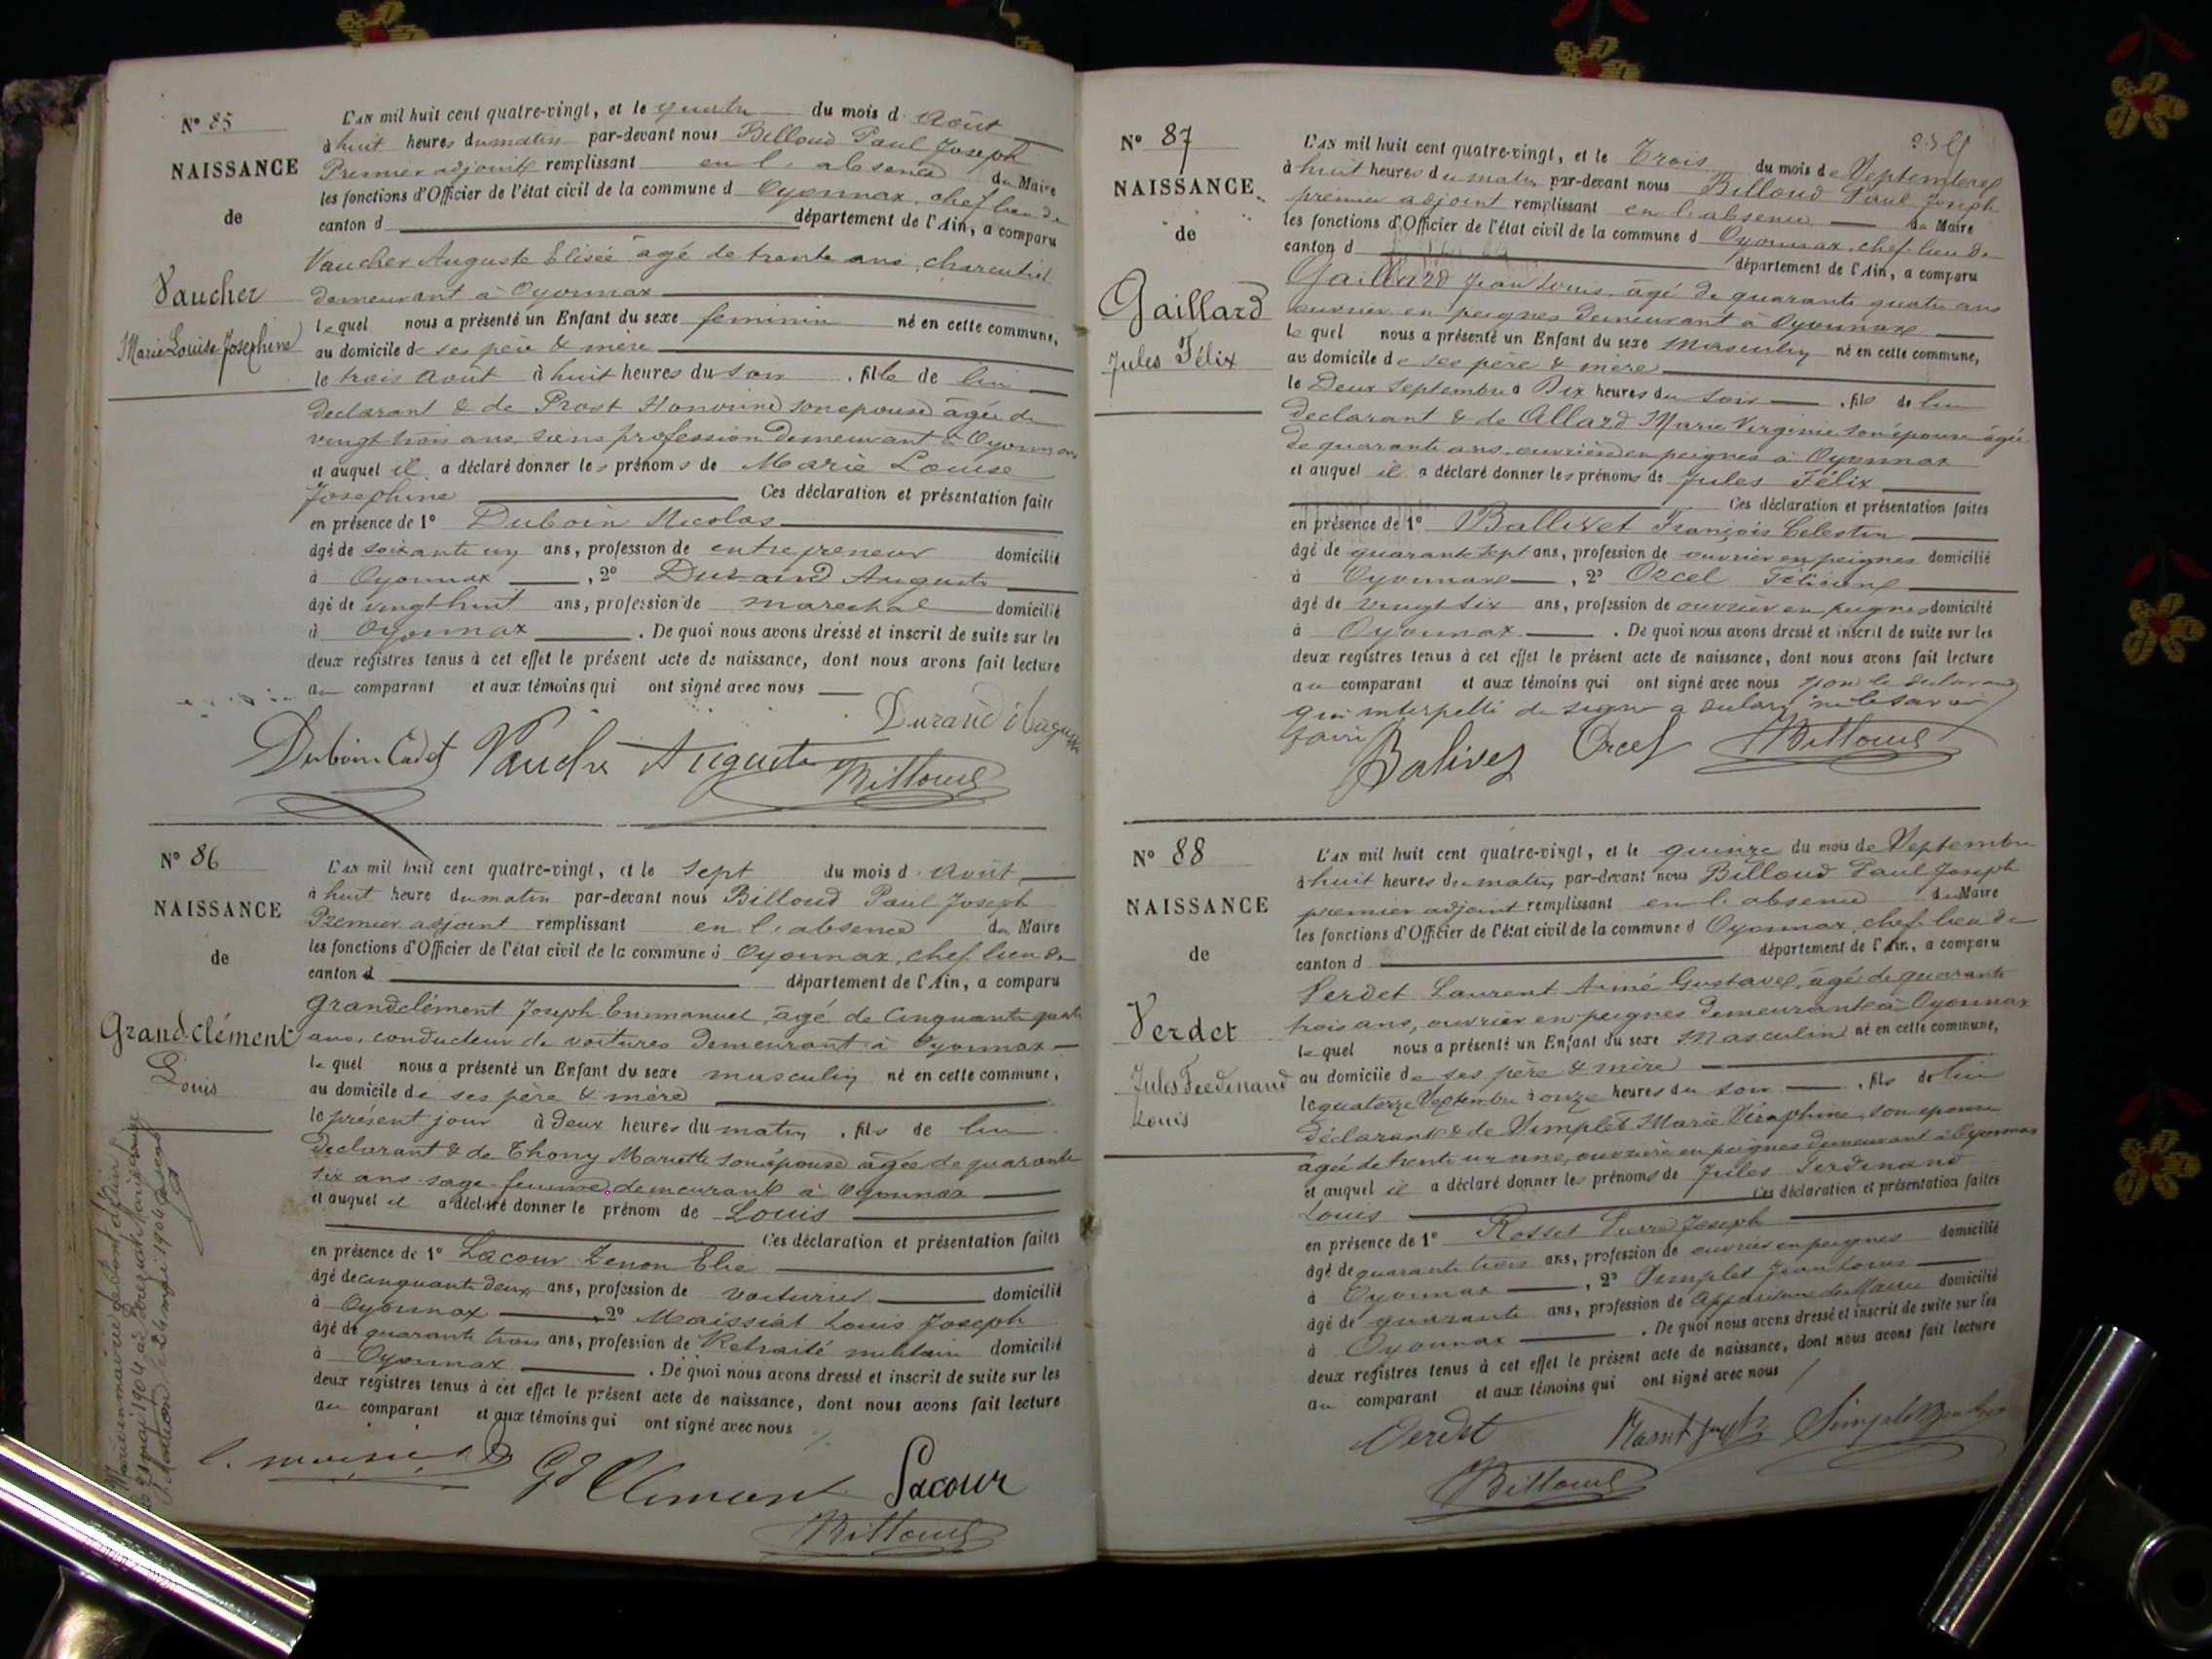 Nº 85
NAISSANCE
de
Vaucher
Marie Louise Josephine
L'AN mil huit cent quatre-vingt, et le quatre du mois d Août
à huit heures du matin par-devant nous Billoud Paul Joseph
Premier adjoint remplissant en l'absence du Maire
les fonctions d'Officier de l'état civil de la commune d Oyonnax, chef lieu de
canton d département de l'Ain, a comparu
Vaucher Auguste Elisée âgé de trente ans, charcutier
demeurant à Oyonnax
lequel nous a présenté un Enfant du sexe feminin né en cette commune,
au domicile de ses père & mère
le trois Août à huit heures du soir, fille de lui
declarant & de Prost Honorine son épouse âgée de
vingt trois ans sans profession demeurant à Oyonnax
et auquel il a déclaré donner les prénoms de Marie Louise
Josephine Ces déclaration et présentation faite
en présence de 1º Duboin Nicolas
âgé de soixante un ans, profession de entrepreneur domicilié
à Oyonnax, 2º Durand Auguste
âgé de vingt huit ans, profession de marechal domicilié
à Oyonnax. De quoi nous avons dressé et inscrit de suite sur les
deux registres tenus à cet effet le présent acte de naissance, dont nous avons fait lecture
au comparant et aux témoins qui ont signé avec nous
Durand Auguste
Duboin Cadet Vaucher Auguste
Billoud
Nº 86
NAISSANCE
de
Grandclément
Louis
L'AN mil huit cent quatre-vingt, et le sept du mois d Août
à huit heure du matin par-devant nous Billoud Paul Joseph
Premier adjoint remplissant en l'absence du Maire
les fonctions d'Officier de l'état civil de la commune d Oyonnax, chef lieu de
canton d département de l'Ain, a comparu
Grandclément Joseph Emmanuel, âgé de Cinquante quatre
ans, conducteur de voitures demeurant à Oyonnax
lequel nous a présenté un Enfant du sexe masculin né en cette commune,
au domicile de ses père & mère
le présent jour à deux heures du matin, fils de lui
declarant & de Thony Mariette son épouse âgée de quarante
six ans sage-femme, demeurant à Oyonnax
et auquel il a déclaré donner le prénom de Louis
Ces déclaration et présentation faites
en présence de 1º Lacour Zenon Elie
âgé de cinquante deux ans, profession de voiturier domicilié
à Oyonnax 2º Maissiat Louis Joseph
âgé de quarante trois ans, profession de Retraité militaire domicilié
à Oyonnax. De quoi nous avons dressé et inscrit de suite sur les
deux registres tenus à cet effet le présent acte de naissance, dont nous avons fait lecture
au comparant et aux témoins qui ont signé avec nous
Gd Clément Lacour
Billoud
Nº 87
NAISSANCE
de
Gaillard
Jules Félix
L'AN mil huit cent quatre-vingt, et le Trois du mois de Septembre
à huit heures du matin par-devant nous Billoud Paul Joseph
premier adjoint remplissant en l'absence du Maire
les fonctions d'Officier de l'état civil de la commune d Oyonnax, chef lieu de
canton d département de l'Ain, a comparu
Gaillard Jean Louis, âgé de quarante quatre ans
ouvrier en peignes demeurant à Oyonnax
lequel nous a présenté un Enfant du sexe Masculin né en cette commune,
au domicile de ses père & mère
le Deux Septembre à Dix heures du soir, fils de lui
declarant & de Allard Marie Virginie son épouse âgée
de quarante ans, ouvrière en peignes à Oyonnax
et auquel il a déclaré donner les prénoms de Jules Félix
Ces déclaration et présentation faites
en présence de 1º Ballivet François Celestin
âgé de quarante sept ans, profession de ouvrier en peignes domicilié
à Oyonnax, 2º Orcel
âgé de vingt six ans, profession de ouvrier en peignes domicilié
à Oyonnax. De quoi nous avons dressé et inscrit de suite sur les
deux registres tenus à cet effet le présent acte de naissance, dont nous avons fait lecture
au comparant et aux témoins qui ont signé avec nous non le declarant
qui interpellé de signer a declaré ne le savoir
faire
Balivet Orcel Billoud
Nº 88
NAISSANCE
de
Verdet
Jules Ferdinand
Louis
L'AN mil huit cent quatre-vingt, et le quinze du mois de Septembre
à huit heures du matin, par-devant nous Billoud Paul Joseph
premier adjoint remplissant en l'absence du Maire
les fonctions d'Officier de l'état civil de la commune d Oyonnax, chef lieu de
canton d département de l'Ain, a comparu
Verdet Laurent Aimé Gustave, âgé de quarante
trois ans, ouvrier en peignes demeurant à Oyonnax
lequel nous a présenté un Enfant du sexe Masculin né en cette commune,
au domicile de ses père & mère
le quatorze Septembre à onze heures du soir, fils de lui
déclarant & de Simplet Marie Séraphine, son épouse
âgée de trente un ans, ouvrière en peignes demeurant à Oyonnax
et auquel il a déclaré donner les prénoms de Jules Ferdinand
Louis Ces déclaration et présentation faites
en présence de 1º Rosset Pierre Joseph
âgé de quarante trois ans, profession de ouvrier en peignes domicilié
à Oyonnax, 2º Simplet Jean Louis
âgé de quarante ans, profession de domicilié
à Oyonnax. De quoi nous avons dressé et inscrit de suite sur les
deux registres tenus à cet effet le présent acte de naissance, dont nous avons fait lecture
au comparant et aux témoins qui ont signé avec nous
Verdet
Billoud